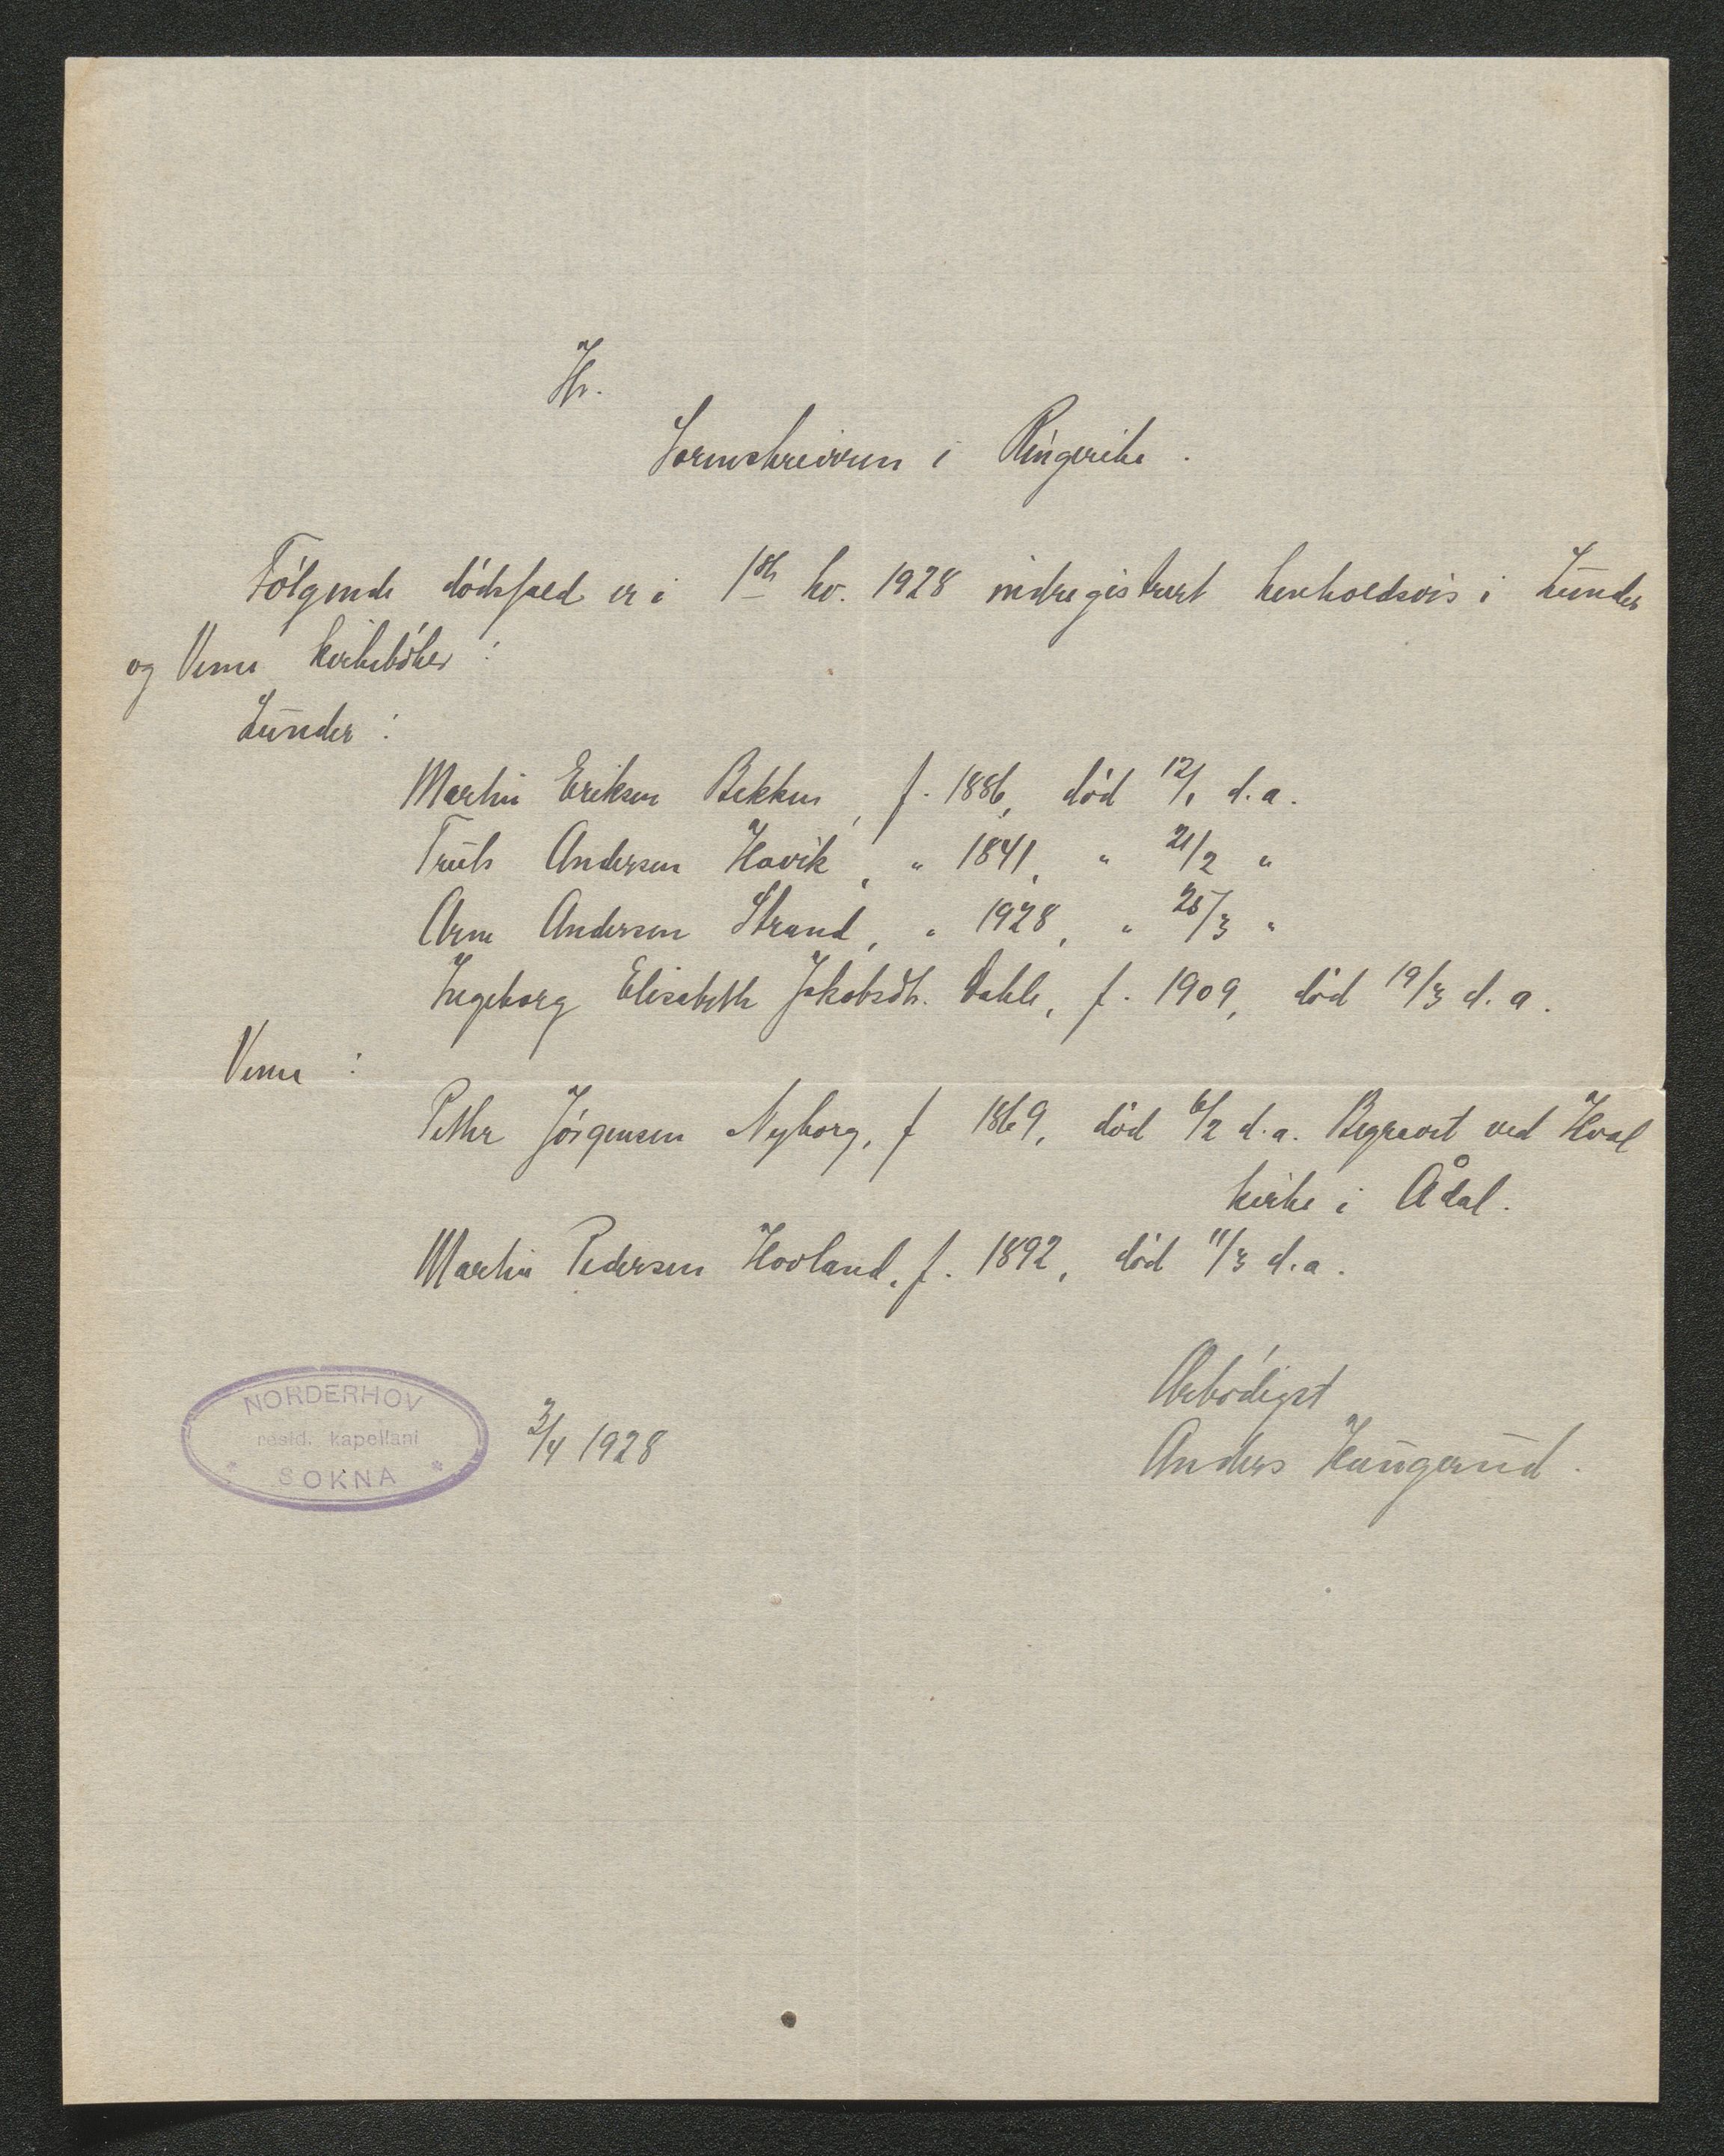 Hr.
Sorenskriveren i Ringerike.
Følgende dødsfald er i 1ste kv. 1928 indregistrert henholdsvis i Lunder
og Veme kirkebøker:
Lunder:
Martin Eriksen Bekken, f. 1886, død 12/1 d.a.
Truls Andersen Havik, " 1841, " 21/2 "
Arne Andersen Strand, " 1928, " 25/3 "
Ingeborg Elisabeth Jakobsdtr. Dahle, f. 1909, død 19/3 d.a.
Veme:
Petter Jørgensen Nyborg, f 1869, død 6/2 d.a. Begravet ved Hval
kirke i Ådal.
Martin Pedersen Hovland, f. 1892, død 11/3 d.a.
Ærbødigst
NORDERHOV
resid. kapellani
* SOKNA *
3/4 1928
Anders Haugerud.